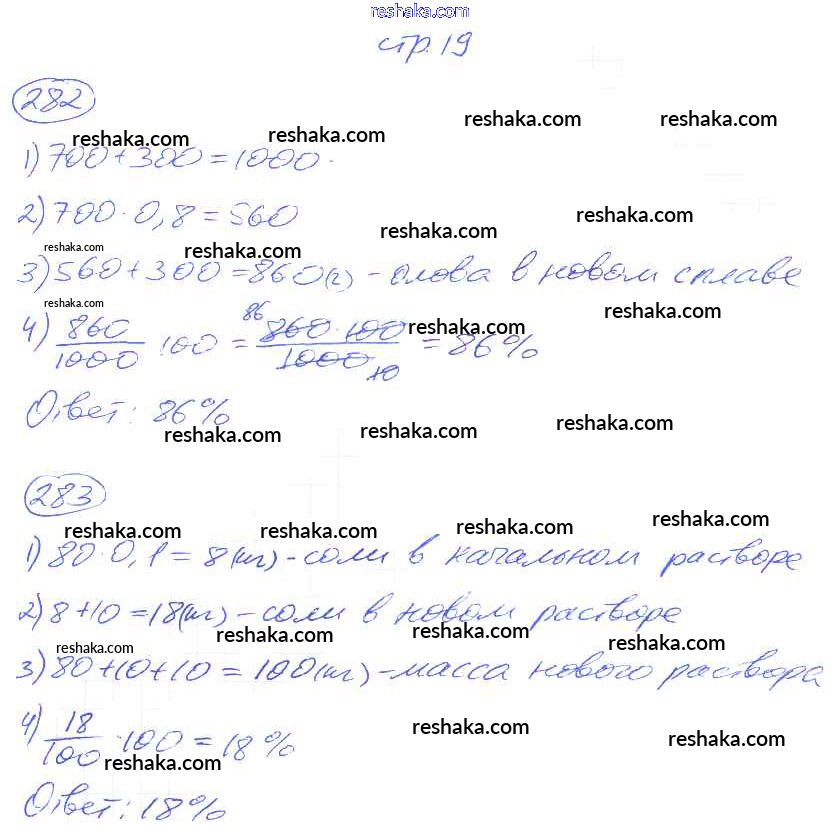 reshaka.com
стр. 19
282
reshaka.com reshaka.com reshaka.com reshaka.com
1) 700 + 300 = 1000.
2) 700 · 0,8 = 560
reshaka.com reshaka.com reshaka.com reshaka.com
3) 560 + 300 = 860 (г) - олова в новом сплаве
reshaka.com reshaka.com reshaka.com
4) 860/1000 · 100 = 860 · 100/1000 = 86%
86
10
Ответ: 86%
reshaka.com reshaka.com reshaka.com
283
reshaka.com reshaka.com reshaka.com reshaka.com
1) 80 · 0,1 = 8 (кг) - соли в начальном растворе
2) 8 + 10 = 18 (кг) - соли в новом растворе
reshaka.com reshaka.com reshaka.com reshaka.com
3) 80 + 10 + 10 = 100 (кг) - масса нового раствора
4) 18/100 · 100 = 18%
reshaka.com reshaka.com reshaka.com
Ответ: 18%